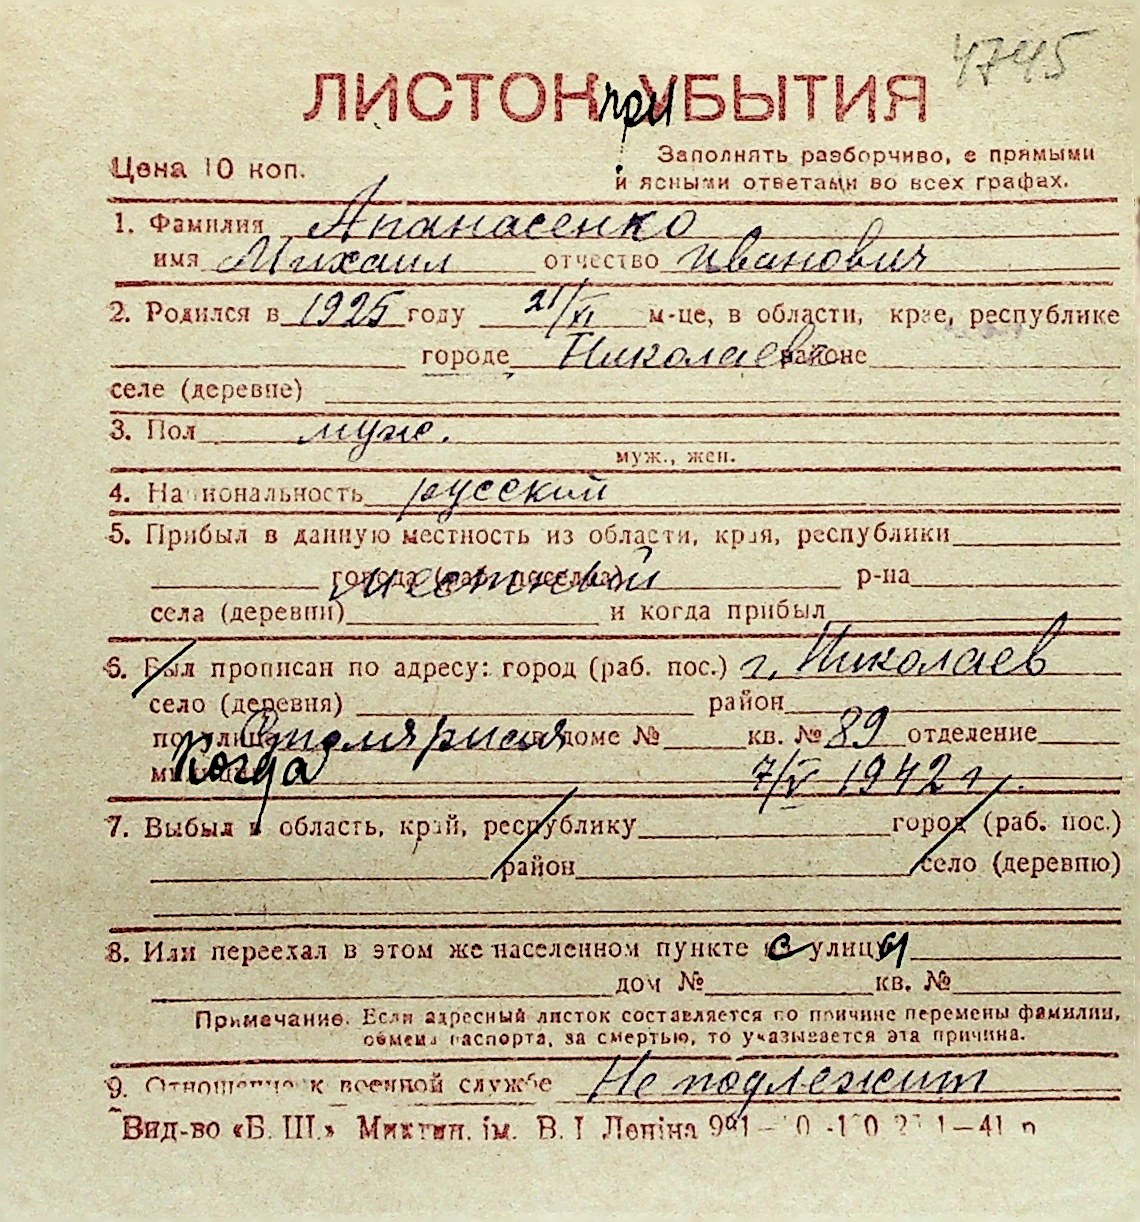 4745
ЛИСТОК при УБЫТИЯ
Цена 10 коп.
Заполнять разборчиво, с прямыми
и ясными ответами во всех графах.
1. Фамилия Апанасенко
имя Михаил отчество Иванович
2. Родился в 1925 году 21/XI м-це, в области, крае, республике
городе Николаев районе
селе (деревне)
3. Пол муж.
муж., жен.
4. Национальность русский
5. Прибыл в данную местность из области, края, республики
города (раб. поселка) местный р-на
села (деревни) и когда прибыл
6. Был прописан по адресу: город (раб. пос.) г. Николаев
село (деревня) район
по улице в доме № кв. № 89 отделение
милиции Когда 7/V 1942 г.
7. Выбыл в область, край, республику город (раб. пос.)
район село (деревню)
8. Или переехал в этом же населенном пункте с улицы
дом № кв. №
Примечание. Если адресный листок составляется по причине перемены фамилии,
обмена паспорта, за смертью, то указывается эта причина.
9. Отношение к военной службе Не подлежит
Вид-во «Б. Ш.» Миктип. ім. В. І Леніна